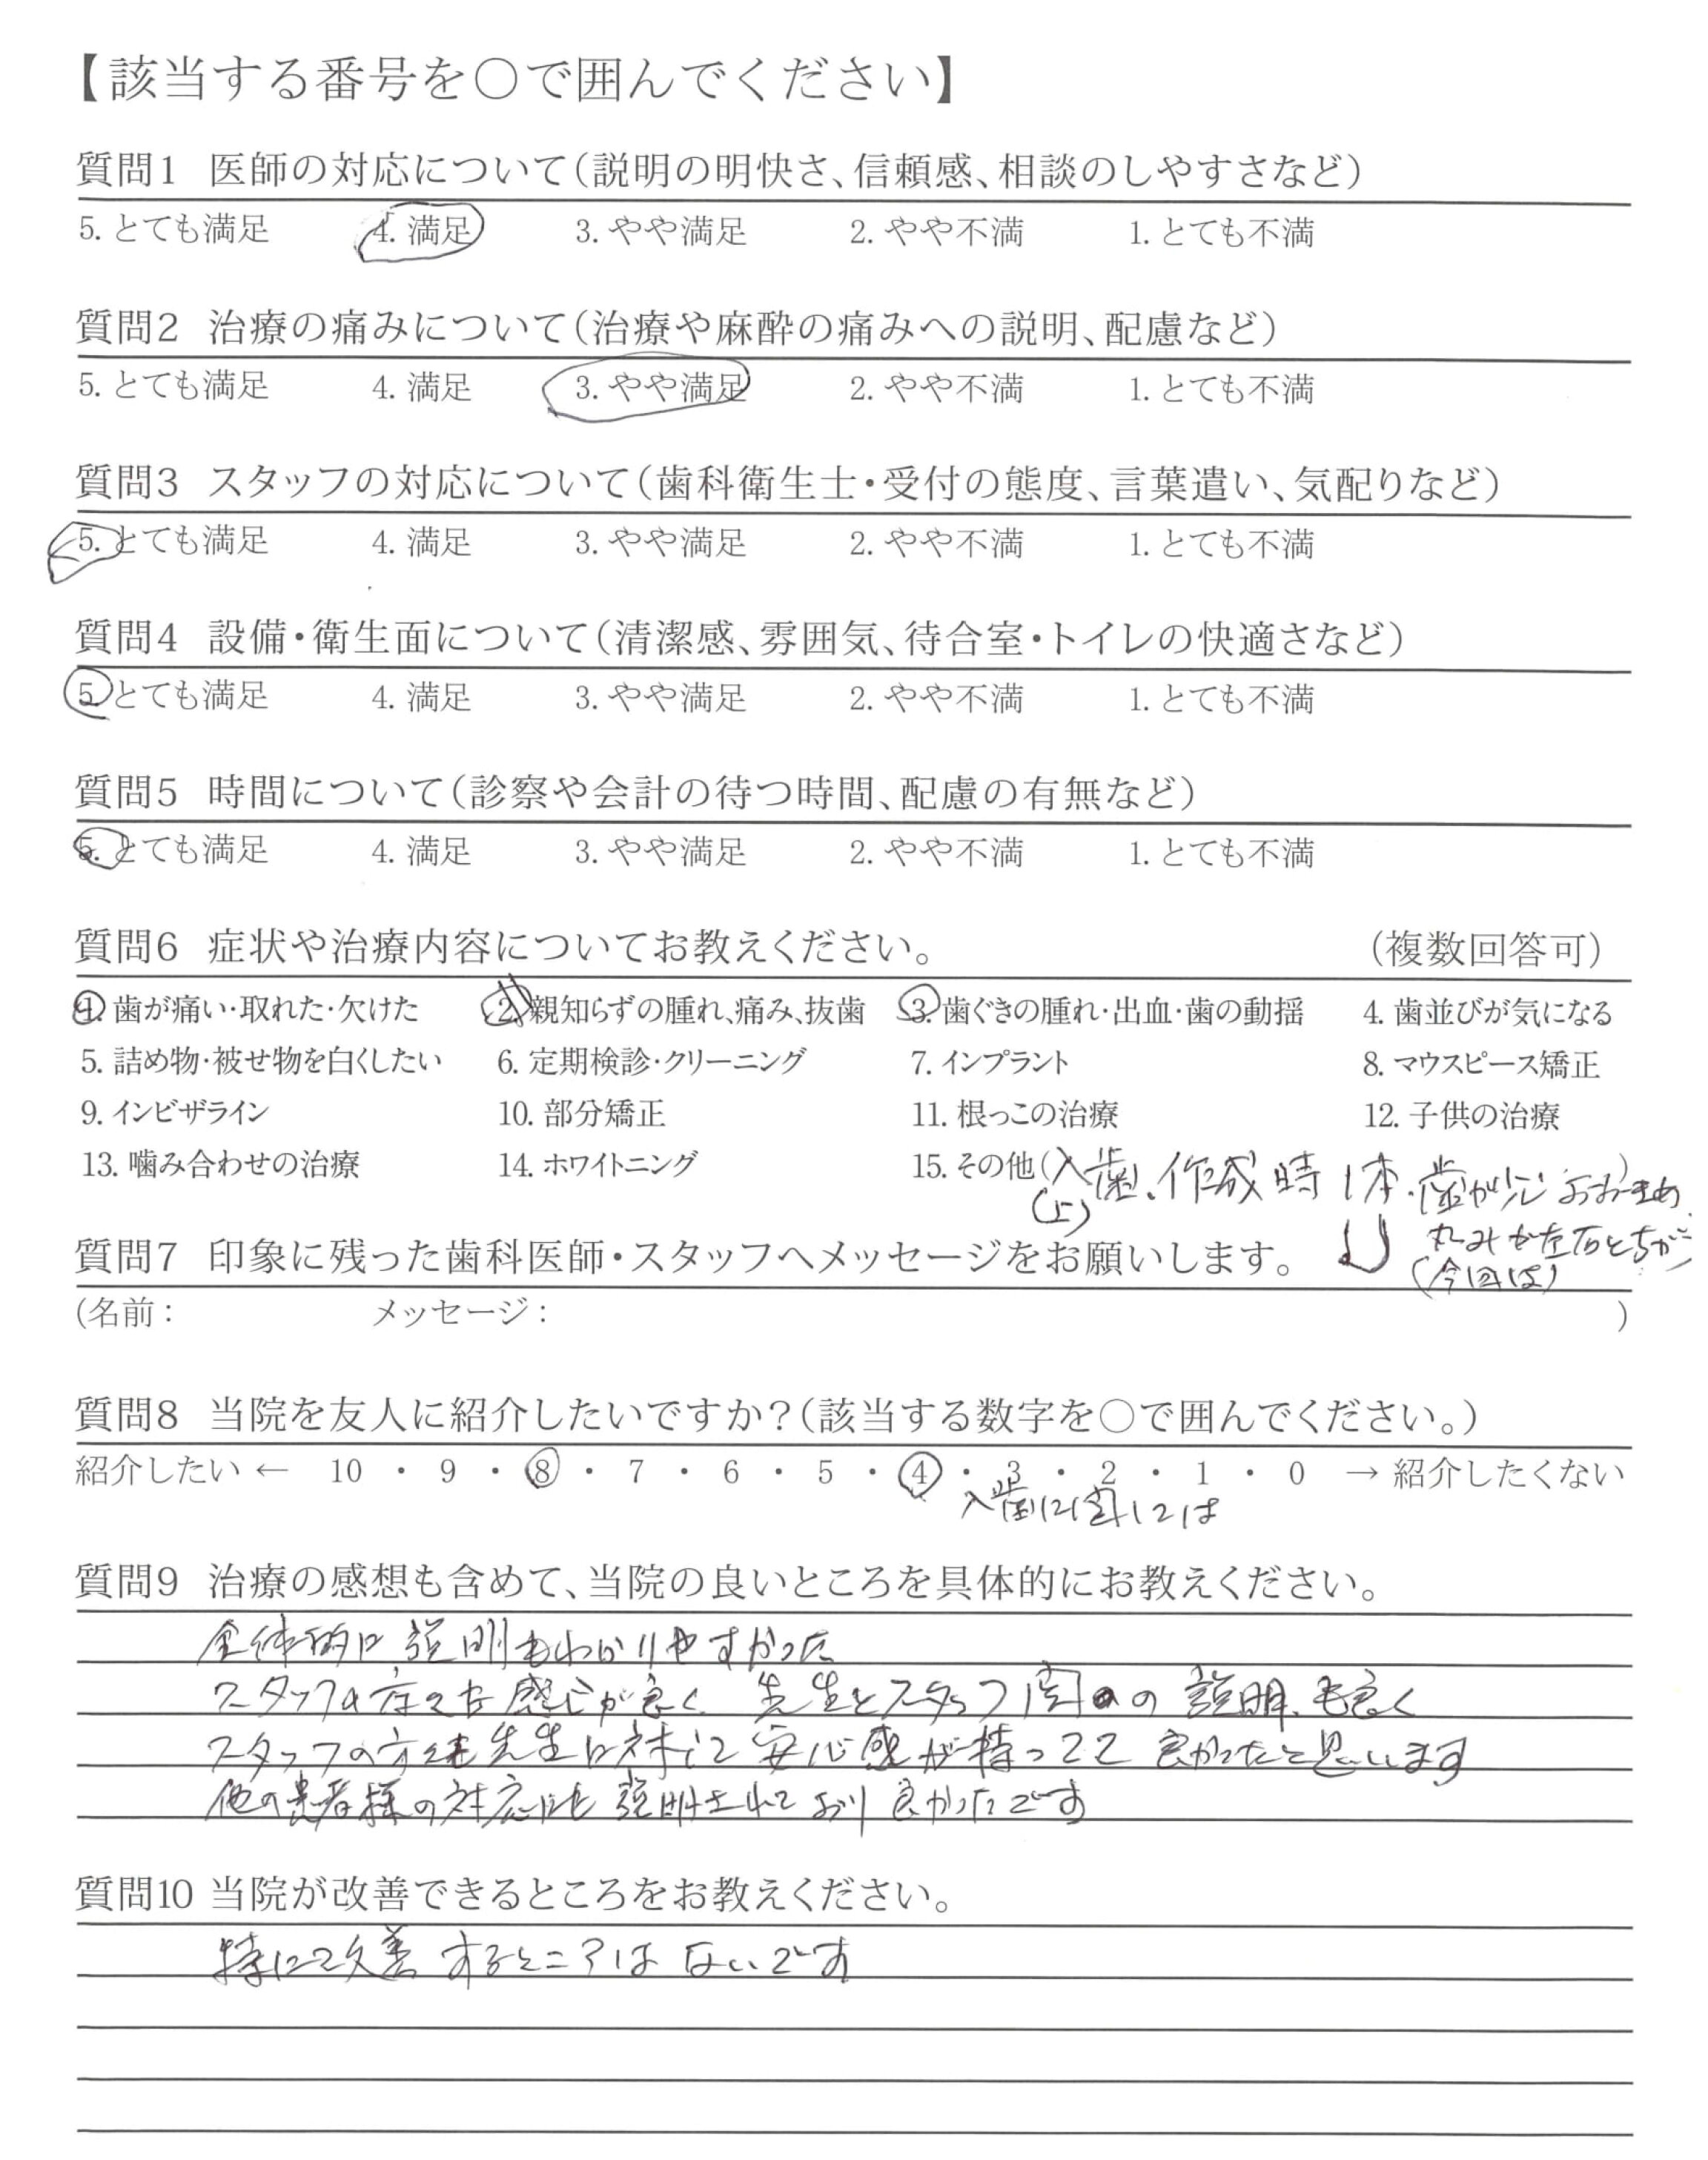 【該当する番号を○で囲んでください】
質問1 医師の対応について(説明の明快さ、信頼感、相談のしやすさなど)
5. とても満足 4. 満足 3. やや満足 2. やや不満 1. とても不満
質問2 治療の痛みについて(治療や麻酔の痛みへの説明、配慮など)
5. とても満足 4. 満足 3. やや満足 2. やや不満 1. とても不満
質問3 スタッフの対応について(歯科衛生士・受付の態度、言葉遣い、気配りなど)
5. とても満足 4. 満足 3. やや満足 2. やや不満 1. とても不満
質問4 設備・衛生面について(清潔感、雰囲気、待合室・トイレの快適さなど)
5. とても満足 4. 満足 3. やや満足 2. やや不満 1. とても不満
質問5 時間について(診察や会計の待つ時間、配慮の有無など)
5. とても満足 4. 満足 3. やや満足 2. やや不満 1. とても不満
質問6 症状や治療内容についてお教えください。 (複数回答可)
1. 歯が痛い・取れた・欠けた 2. 親知らずの腫れ、痛み、抜歯 3. 歯ぐきの腫れ・出血・歯の動揺 4. 歯並びが気になる
5. 詰め物・被せ物を白くしたい 6. 定期検診・クリーニング 7. インプラント 8. マウスピース矯正
9. インビザライン 10. 部分矯正 11. 根っこの治療 12. 子供の治療
13. 噛み合わせの治療 14. ホワイトニング 15. その他(入歯、作成時 1本・歯が少し )
(上)
丸みが左右とちがう
(今回は)
質問7 印象に残った歯科医師・スタッフへメッセージをお願いします。
(名前: メッセージ: )
質問8 当院を友人に紹介したいですか?(該当する数字を○で囲んでください。)
紹介したい ← 10 ・ 9 ・ 8 ・ 7 ・ 6 ・ 5 ・ 4 ・ 3 ・ 2 ・ 1 ・ 0 → 紹介したくない
入歯に関しては
質問9 治療の感想も含めて、当院の良いところを具体的にお教えください。
全体的に説明もわかりやすかった
スタッフの方々も感じが良く 先生とスタッフ間の説明も良く
スタッフの方々も先生に対して安心感が持ってて良かったと思います
他の患者様の対応にも説明されており良かったです
質問10 当院が改善できるところをお教えください。
特に改善するところはないです